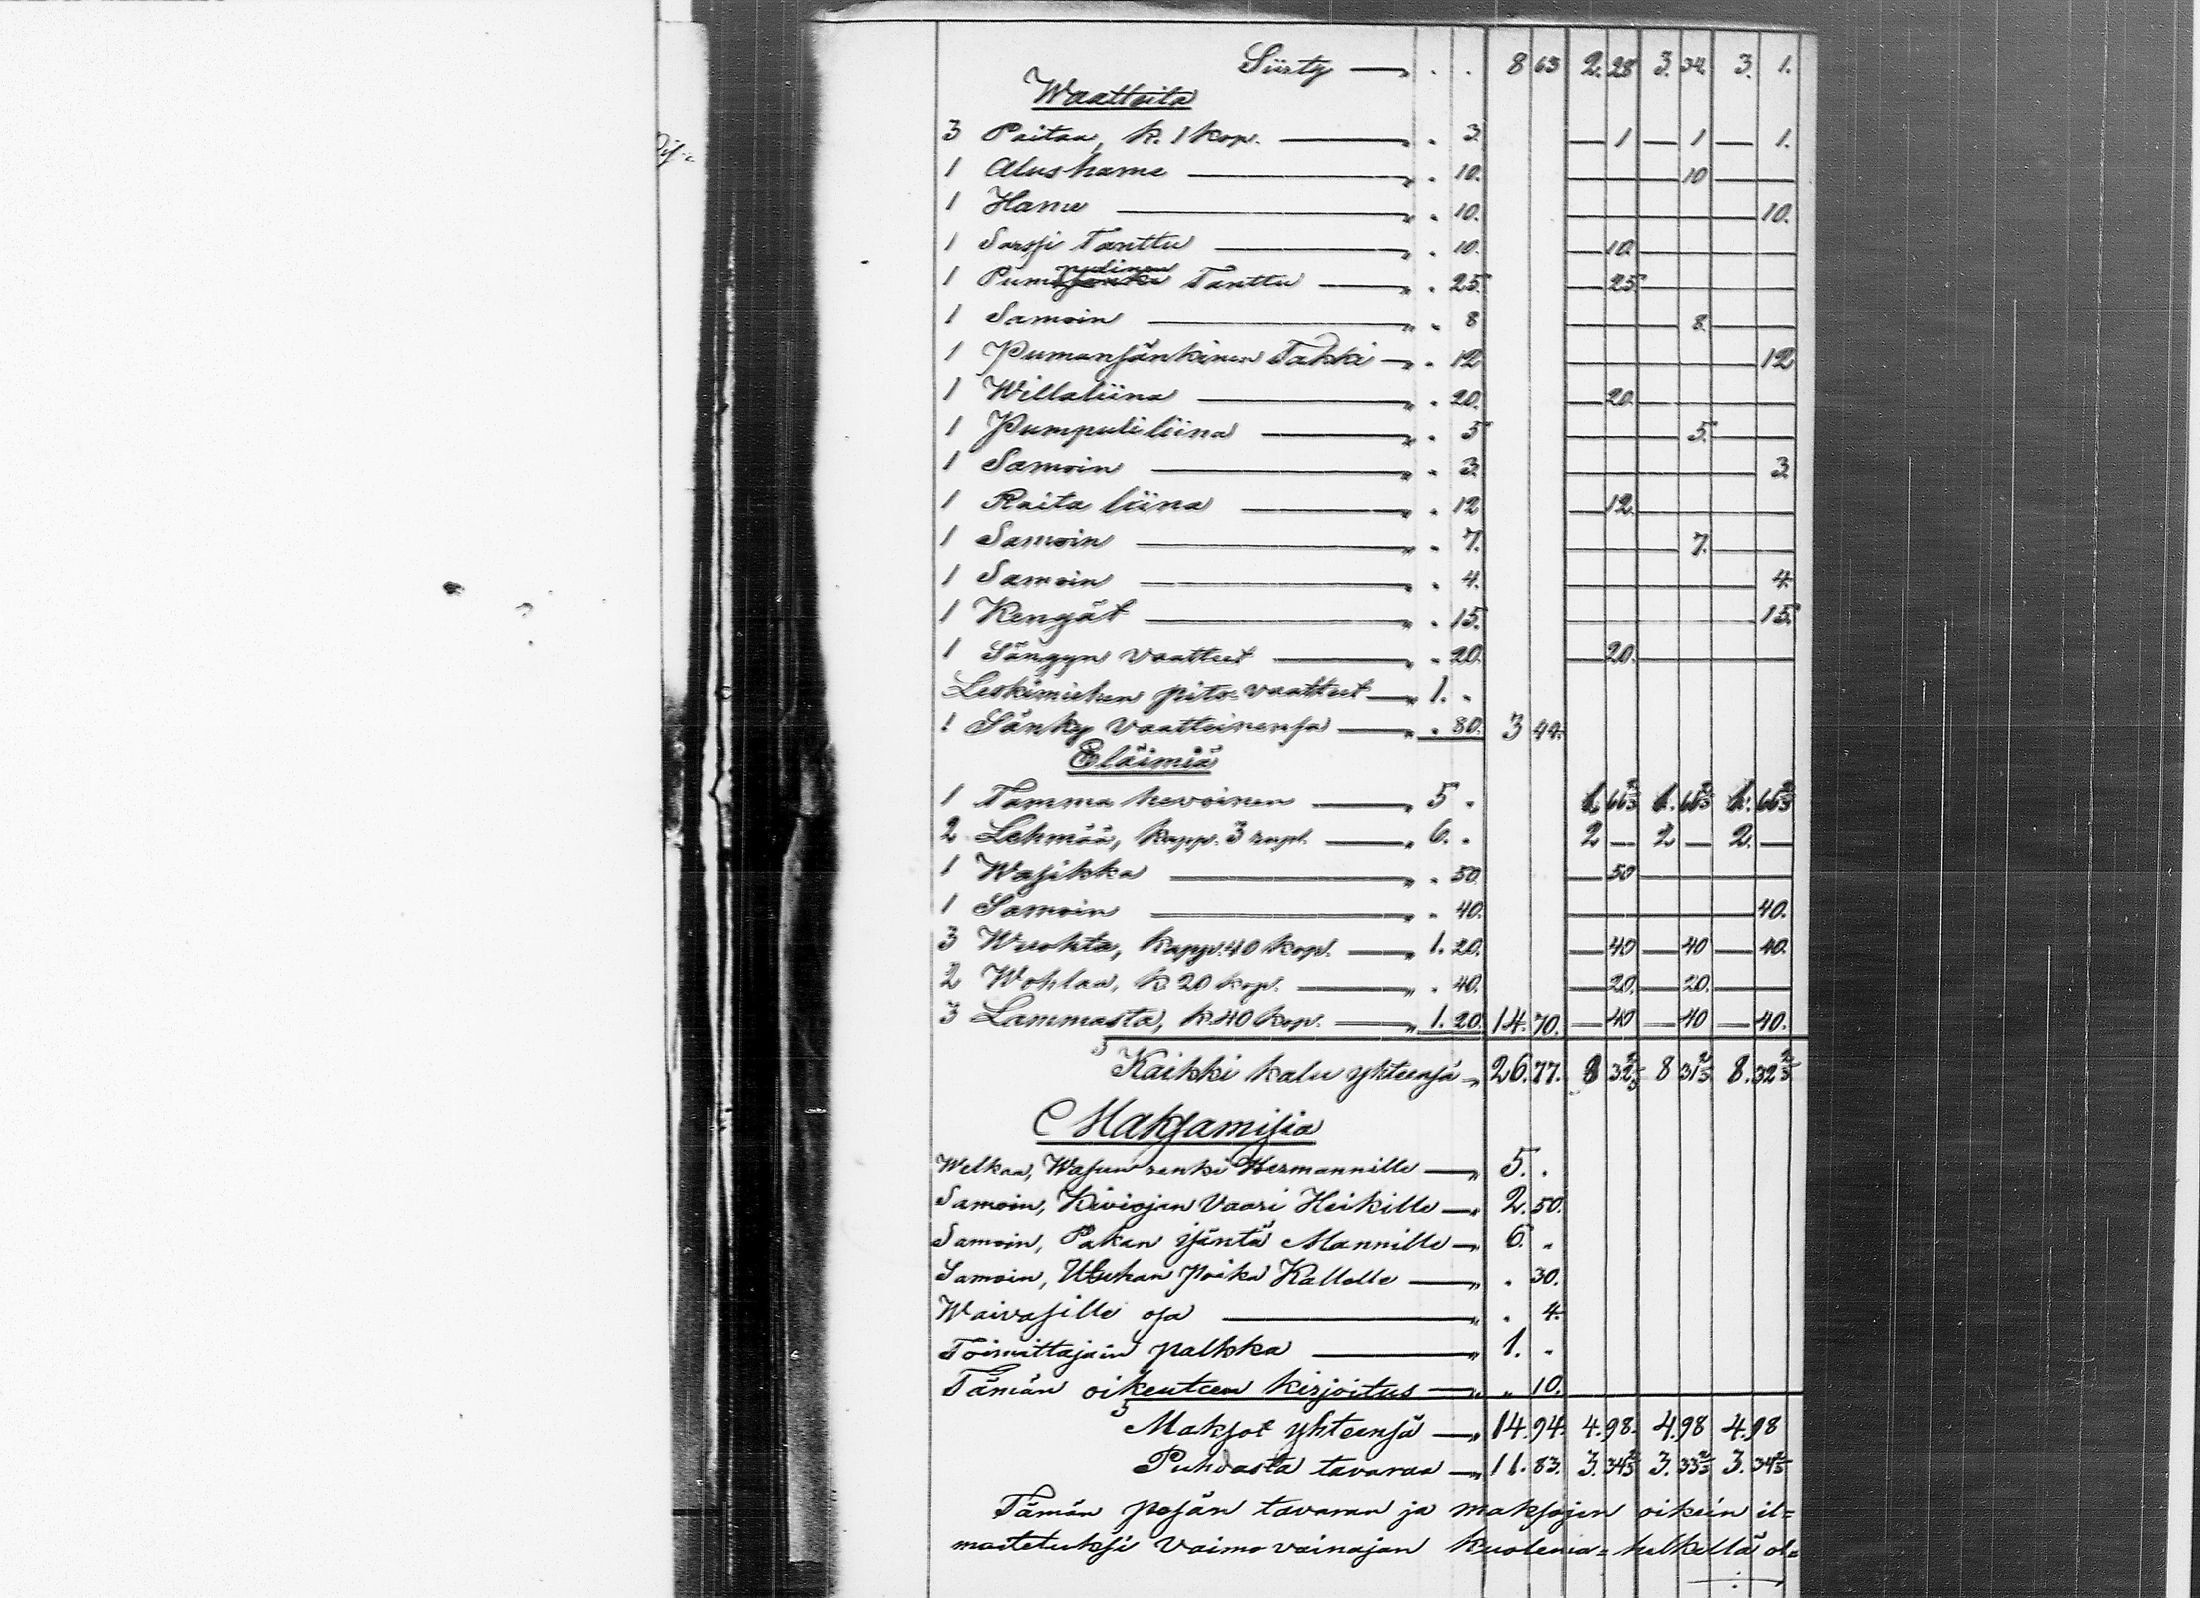 Siirty — " . . 8 63 2. 28 3. 34. 3. 1.
Waatteita
3 Paitaa, k. 1 kop. — " . 3. — 1 — 1 — 1.
1 Alushame — " . 10. — 10 —
1 Hame — " . 10. — 10.
1 Sarssi Tanttu — " . 10. — 10. —
1 Pumpulinen Tanttu — " . 25. — 25 —
1 Samoin — " . 8 — 8. —
1 Pumansänkinen Takki — " . 12 — 12
1 Willaliina — " . 20. — 20. —
1 Pumpuliliina — " . 5 — 5. —
1 Samoin — " . 3. — 3
1 Raita liina — " . 12 — 12. —
1 Samoin — " . 7. — 7. —
1 Samoin — " . 4. — 4.
1 Kengät — " . 15. — 15.
1 Sängyn vaatteet — " . 20. — 20. —
Leskimiehen pito vaatteet — " 1. .
1 Sänky vaatteinensa — " . 80. 3 44.
Eläimiä
1 Tamma hevoinen — " 5 . 1. 66 2/3 1. 66 2/3 1. 66 2/3
2 Lehmää, kapp. 3 rupl. — " 6. . 2 — 2 — 2. —
1 Wasikka — " . 50. — 50 —
1 Samoin — " . 40. — 40.
3 Wuohta, kapp. 40 kop. — " 1. 20. — 40 — 40 — 40.
2 Wohlaa, k. 20 kop. — " . 40. — 20. — 20. —
3 Lammasta, k. 40 kop. — " 1. 20. 14. 70. — 40 — 40 — 40.
Kaikki kalu yhteensä " 26. 77. 8 32 2/3 8 31 2/3 8. 32 2/3
Maksamisia
Welkaa, renki Hermannille — " 5. .
Samoin, Kiviojan Vaari Heikille — " 2. 50.
Samoin, Pakan isäntä Mannille — " 6. .
Samoin, poika Kallelle — " . 30.
Waivasille osa — " . 4.
Toimittajain palkka — " 1. .
Tämän oikeuteen kirjoitus — " " 10.
Maksot yhteensä — " 14. 94. 4. 98. 4. 98 4. 98
Puhdasta tavaraa — " 11. 83. 3. 34 2/3 3. 33 2/3 3. 34 2/3
Tämän pesän tavaran ja maksojen oikein il=
moitetuksi vaimo vainajan kuolema=helkellä ol=